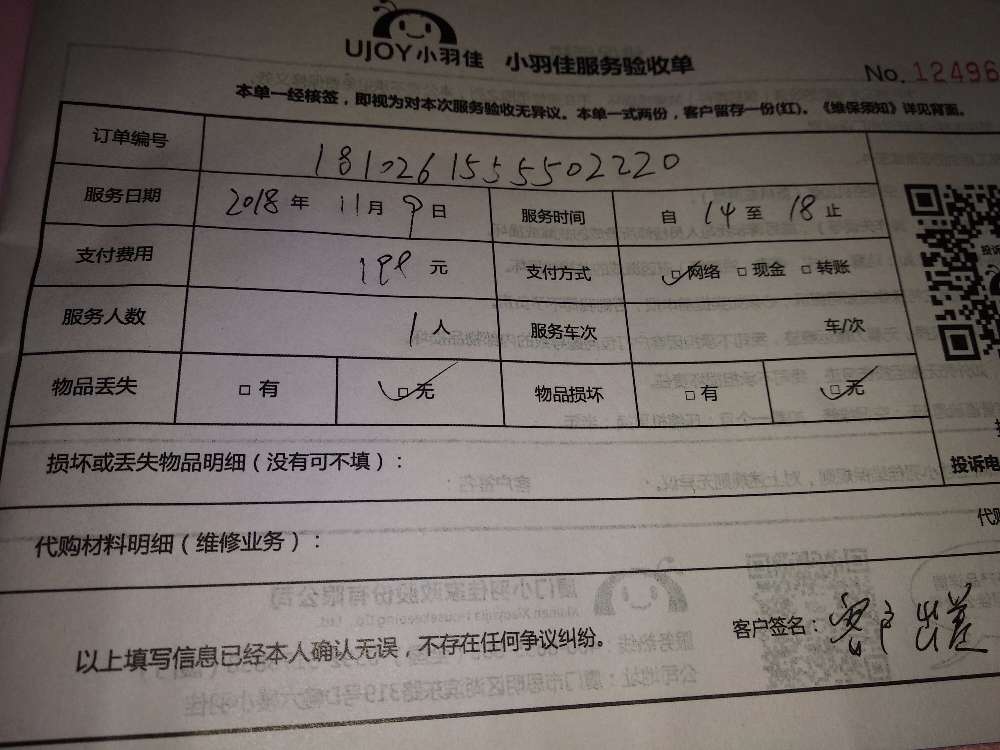 UJOY小羽佳 小羽佳服务验收单
No. 12496
本单一经核签，即视为对本次服务验收无异议。本单一式两份，客户留存一份(红)。《维保须知》详见背面。
订单编号 181026155502220
服务日期 2018 年 11 月 9 日 服务时间 自 14 至 18 止
支付费用 198 元 支付方式 □网络 □现金 □转账
服务人数 1 人 服务车次 车/次
物品丢失 □有 □无 物品损坏 □有 □无
损坏或丢失物品明细（没有可不填）：
投诉电
代购材料明细（维修业务）：
代购
以上填写信息已经本人确认无误，不存在任何争议纠纷。
客户签名：客户出差